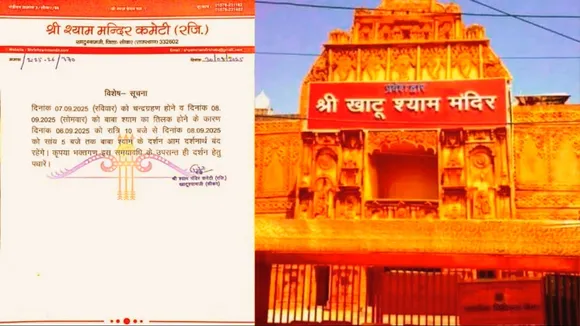 श्री श्याम मन्दिर कमेटी (रजि.)
खाटूश्यामजी, जिला- सीकर (राजस्थान) 332602
विशेष- सूचना
दिनांक 07.09.2025 (रविवार) को चन्द्रग्रहण होने व दिनांक 08.
09.2025 (सोमवार) को बाबा श्याम का तिलक होने के कारण
दिनांक 06.09.2025 को रात्रि 10 बजे से दिनांक 08.09.2025
को सांय 5 बजे तक बाबा श्याम के दर्शन आम दर्शनार्थ बंद
रहेंगे। कृपया भक्तगण इस समयावधि के उपरान्त ही दर्शन हेतु
पधारें।
श्री श्याम मंदिर कमेटी (रजि.)
खाटूश्यामजी (सीकर)
प्रवेश द्वार
श्री खाटू श्याम मंदिर